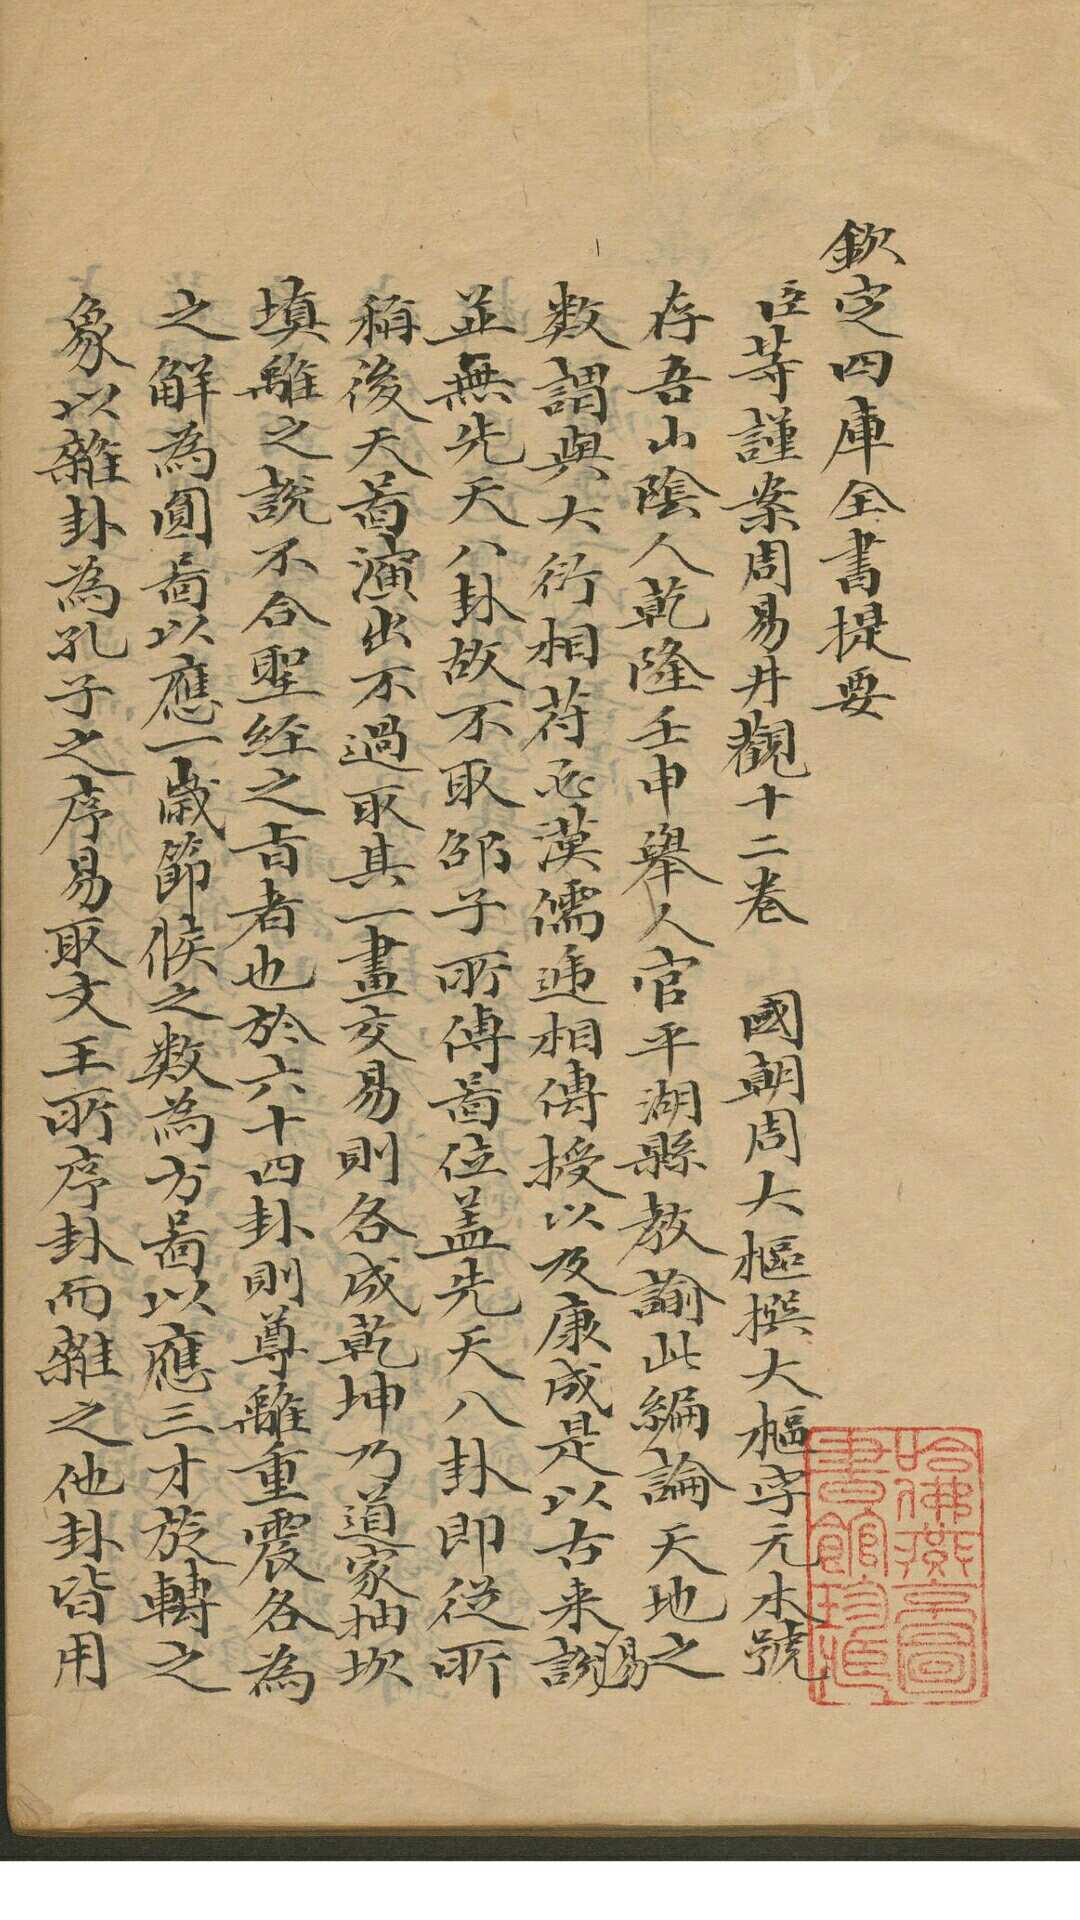 欽定四庫全書提要
臣等謹案周易井觀十二卷 國朝周大樞撰大樞字元木號
存吾山陰人乾隆壬申舉人官平湖縣教諭此編論天地之
數謂與大衍相符必漢儒遞相傳授以及康成是以古来説易
並無先天八卦故不取邵子所傳啚位盖先天八卦即從所
稱後天啚演出不過取其一畫交易則各成乾坤乃道家抽坎
填離之說不合聖經之旨者也於六十四卦則尊離重震各為
之解為圓啚以應一歲節候之数為方啚以應三才旋轉之
象以雜卦為孔子之序易取文王所序卦而雜之他卦皆用
哈佛燕京圖書館珍藏